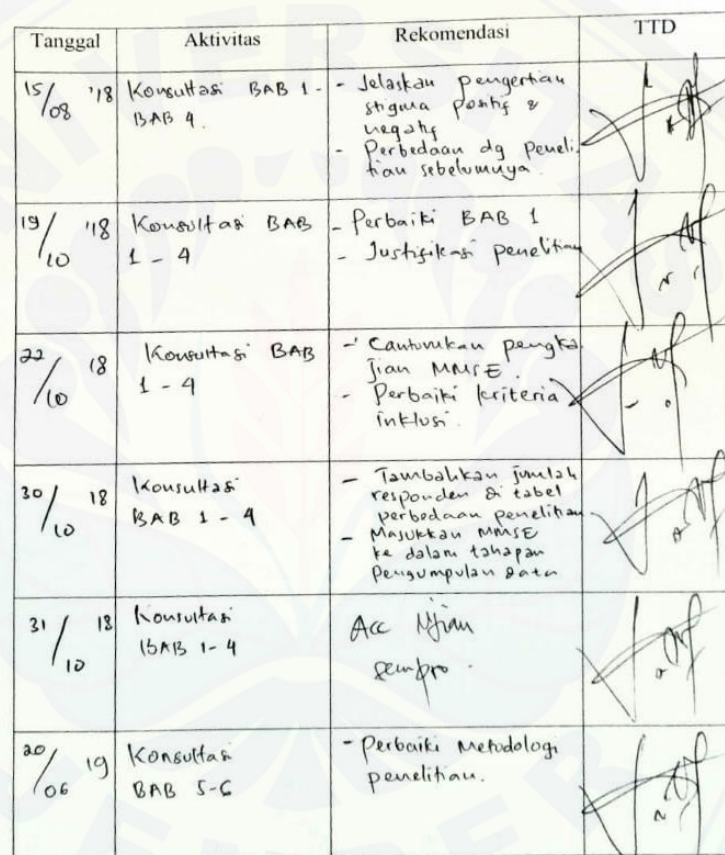 Tanggal Aktivitas Rekomendasi TTD
15/08 '18 Konsultasi BAB 1 - - Jelaskan pengertian
BAB 4. stigma positif &
negatif
- Perbedaan dg peneli-
tian sebelumnya.
19/10 '18 Konsultasi BAB - Perbaiki BAB 1
1 - 4 - Justifikasi penelitian
22/10 18 Konsultasi BAB - Cantumkan pengka
1 - 4 jian MMSE.
- Perbaiki kriteria
inklusi.
30/10 18 Konsultasi - Tambahkan jumlah
BAB 1 - 4 responden di tabel
perbedaan penelitian
- Masukkan MMSE
ke dalam tahapan
Pengumpulan data
31/10 18 Konsultasi Acc Ujian
BAB 1-4 sempro.
20/06 19 Konsultasi - Perbaiki Metodologi
BAB 5-6 penelitian.